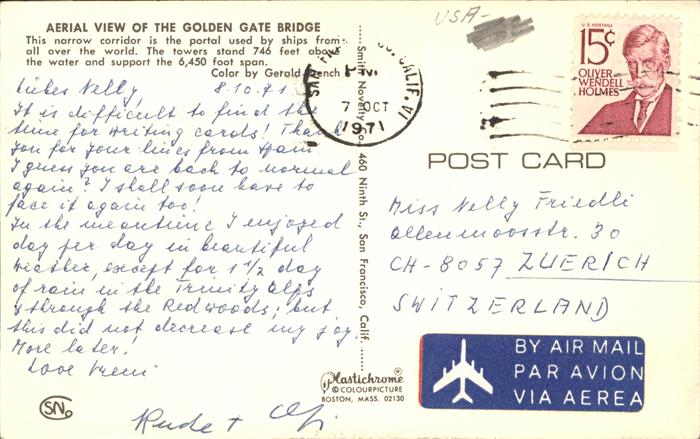 AERIAL VIEW OF THE GOLDEN GATE BRIDGE
This narrow corridor is the portal used by ships from
all over the world. The towers stand 746 feet above
the water and support the 6,450 foot span.
Color by Gerald French
Liebes Nelly, 8.10.71
It is difficult to find the
time for writing cards! Thank
you for your lines from Spain
I guess you are back to normal
again? I shall soon have to
face it again too!
In the meantime I enjoyed
day per day in beautiful
weather, except for 1 1/2 day
of rain in the Trinity Alps
& through the Redwoods; but
this did not decrease my joy.
More later!
Love Vreni
SN
Smith Novelty Co., 460 Ninth St., San Francisco, Calif.
Plastichrome®
© COLOURPICTURE
BOSTON, MASS. 02130
USA-
SAN CALIF.
7 OCT
1971
U.S. POSTAGE
15¢
OLIVER
WENDELL
HOLMES
POST CARD
Miss Nelly Friedli
Allenmoosstr. 30
CH-8057 ZUERICH
SWITZERLAND
BY AIR MAIL
PAR AVION
VIA AEREA